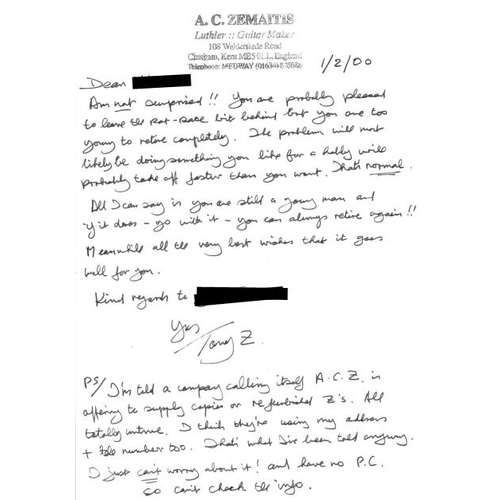 A. C. ZEMAITIS
Luthier :: Guitar Maker
108 Walderslade Road
Chatham, Kent ME5 0LL, England
Telephone: MEDWAY (01634)
1/2/00
Dear
Am not surprised !! You are probably pleased
to leave the rat-race bit behind but you are too
young to retire completely. The problem will most
likely be doing something you like for a hobby will
probably take off faster than you want. Thats normal.
All I can say is you are still a young man and
if it does - go with it - you can always retire again !!
Meanwhile all the very best wishes that it goes
well for you.
Kind regards to
Yrs
Tony Z.
PS/ I'm told a company calling itself A.C.Z. is
offering to supply copies or refurbished Z's. All
totally untrue. I think they're using my address
+ tele number too. Thats what I've been told anyway.
I just can't worry about it! and have no P.C.
So can't check the info.